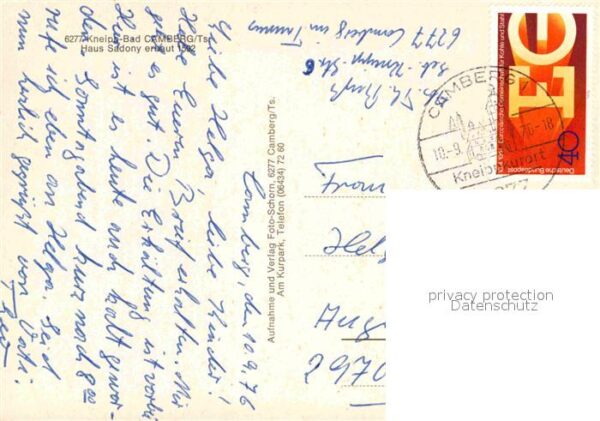 6277 Kneipp-Bad CAMBERG/Ts.
Haus Sadony erbaut 1592
Camberg, den 10.9.76
Liebe Helga, liebe Kinder!
Habe Euren Brief erhalten. Mir
geht es gut. Die Erkältung ist vorbei
Hier ist es heute auch kalt gewor-
den. Sonntagabend kurz nach 8 00
rufe ich eben an Helga. Seid
nun herzlich gegrüßt von Vati!
Aufnahme und Verlag Foto-Schorn, 6277 Camberg/Ts.
Am Kurpark, Telefon (06434) 72 60
6277 Camberg im Taunus
Hel
Aug
2970
CAMBERG
10.-9.76-18
Kneippkurort
6277
Europäische Gemeinschaft für Kohle und Stahl
40
Deutsche Bundespost
privacy protection
Datenschutz